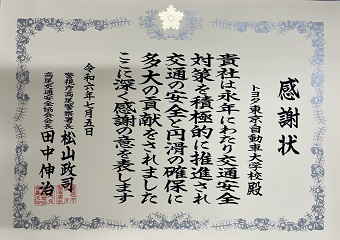 感謝状
トヨタ東京自動車大学校殿
貴社は永年にわたり交通安全
対策を積極的に推進され
交通の安全と円滑の確保に
多大の貢献をされました
ここに深く感謝の意を表します
令和六年七月五日
警視庁高尾警察署長 松山政司
高尾交通安全協会会長 田中伸治